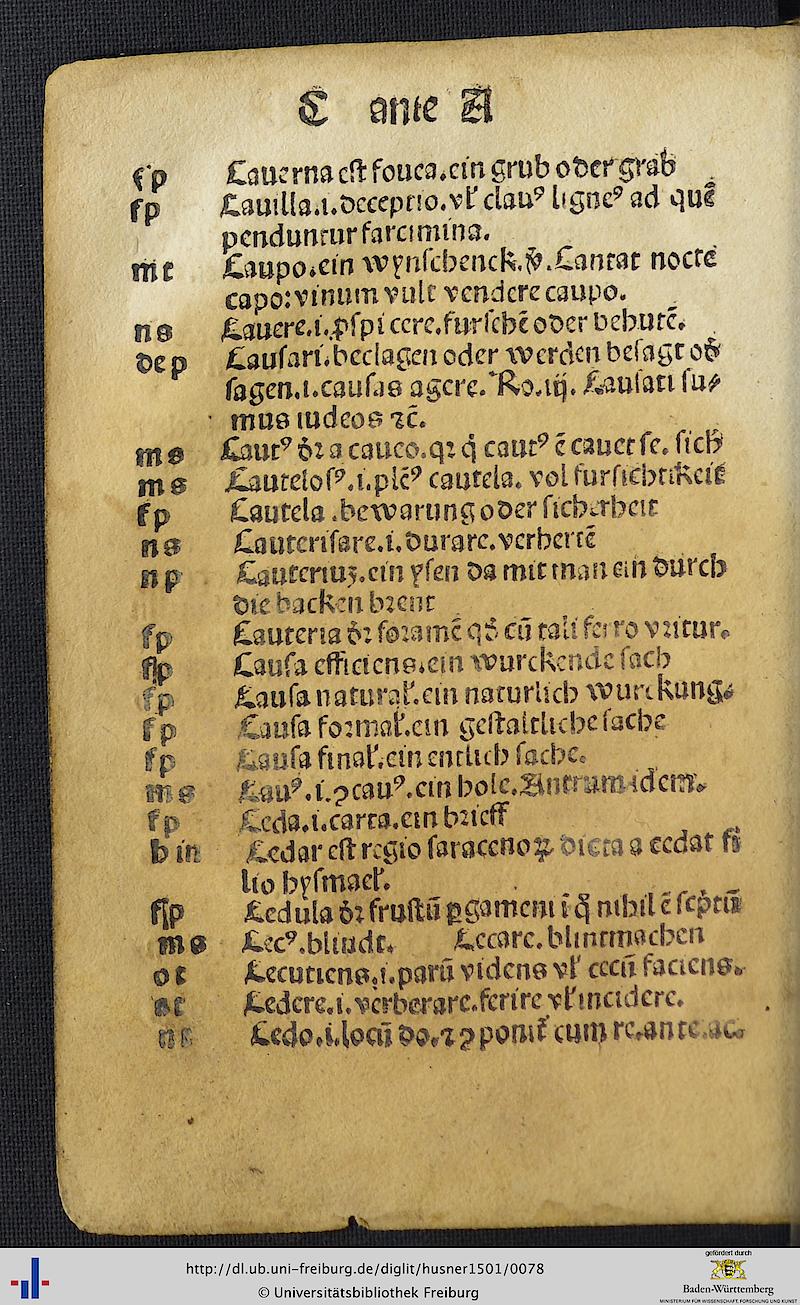 C ante A
fp Cauerna est fouea.ein grub oder grab
fp Cauilla.i.deceptio.vl' clauꝰ ligneꝰ ad quē
penduntur farcimina.
mt Caupo.ein wynschenck.v̕.Cantat nocte
capo:vinum vult vendere caupo.
ns Cauere.i.ꝓspicere.fursehē oder behutē.
dep Causari.beclagen oder werden besagt od̕
sagen.i.causas agere. Ro.iij. Causati su⸗
mus iudeos ⁊c̄.
ms Cautꝰ dꝛ a caueo.qꝛ q̇ cautꝰ ē cauet se. sich
ms Cautelosꝰ.i.plēꝰ cautela. vol fursichtikeit
fp Cautela .bewarung oder sicherheit
ns Cauterisare.i.durare.verhertē
np Cauteriuꝫ.ein ysen da mit man ein durch
die backen bꝛent
fp Cauteria dꝛ foꝛamē qd̕ cū tali ferro vꝛitur.
fp Causa efficiens.ein wurckende sach
fp Causa natural'.ein naturlich wurckung.
fp Causa foꝛmal'.ein gestaltliche sache
fp Causa final'.ein entlich sache.
ms Cauꝰ.i.ꝯcauꝰ.ein hole.Antrum idem.
fp Ceda.i.carta.ein bꝛieff
b in Cedar est regio saracenoꝝ dicta a cedar fi
lio hysmael'.
fp Cedula dꝛ frustū ꝑgameni ī q̄ nihil ē scptū
ms Cecꝰ.blindt. Cecare.blintmachen
ot Cecutiens.i.parū videns vl' cecū faciens.
at Cedere.i.verberare.ferire vl' incidere.
nt Cedo.i.locū do.⁊ ꝯponit' cum re.ante.ac.
http://dl.ub.uni-freiburg.de/diglit/husner1501/0078
© Universitätsbibliothek Freiburg
gefördert durch
Baden-Württemberg
MINISTERIUM FÜR WISSENSCHAFT, FORSCHUNG UND KUNST